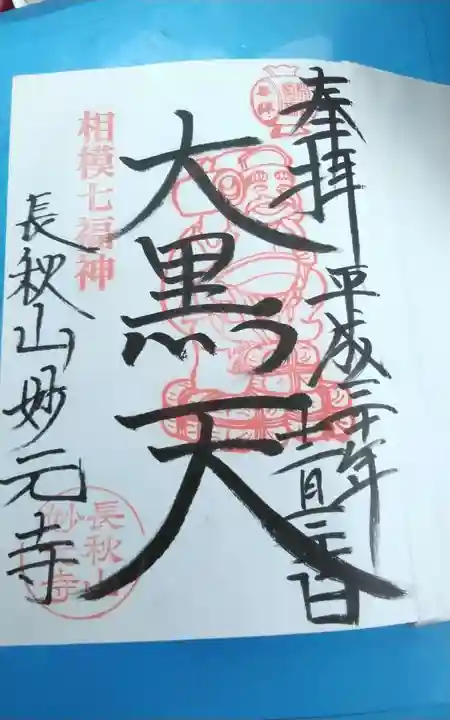 奉拝
平成三十年
十二月
大黒天
相模七福神
長秋山妙元寺
長秋山
妙元寺